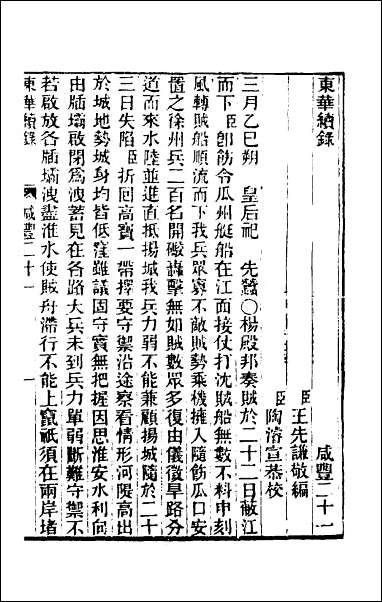 東華續錄
咸豐二十一
臣王先謙敬編
臣陶濬宣恭校
三月乙巳朔　皇后祀　先蠶○楊殿邦奏賊於二十二日敝江
而下臣卽飭令瓜州艇船在江面接仗打沈賊船無數不料申刻
風轉賊船順流而下我兵眾寡不敵賊勢乘機擁入隨飭瓜口安
置之徐州兵二百名開礮轟擊無如賊數眾多復由儀徵旱路分
道而來水陸並進直抵揚城我兵力弱不能兼顧揚城隨於二十
三日失陷臣折回高寶一帶擇要守禦沿途察看情形河隄高出
於城地勢城身均皆低窪雖議固守實無把握因思淮安水利向
由牐壩啟閉爲洩蓄見在各路大兵未到兵力單弱斷難守禦不
若啟放各牐壩洩盡淮水使賊舟滯行不能上竄祇須在兩岸堵
東華續錄
咸豐二十一
一